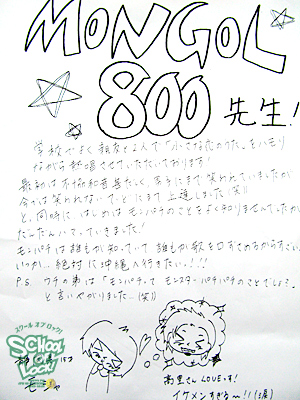 MONGOL
800 先生!
学校でよく親友と2人で「小さな恋のうた」をハモり
ながら熱唱させていただいております!
最初は不協和音甚だしく、あまりにまで笑われていましたが
今では笑われないでいどにまで上達しました(笑)
と、同時に、はじめはモンパチのことをよく知りませんでしたが
だんだんハマっていきました!
モンパチは誰もが知っていて誰もが歌を口ずさめるからすごい
いつか、絶対に沖縄へ行きたい…!!
P.S. ウチの弟は「モンパチってモンスターパチパチのことでしょ?」
と言いやがりました…(笑))
スクール オブ ロック!
SCHOOL
OF
LOCK!
高里さんLOVEです!
イケメンすぎる〜!!(涙)